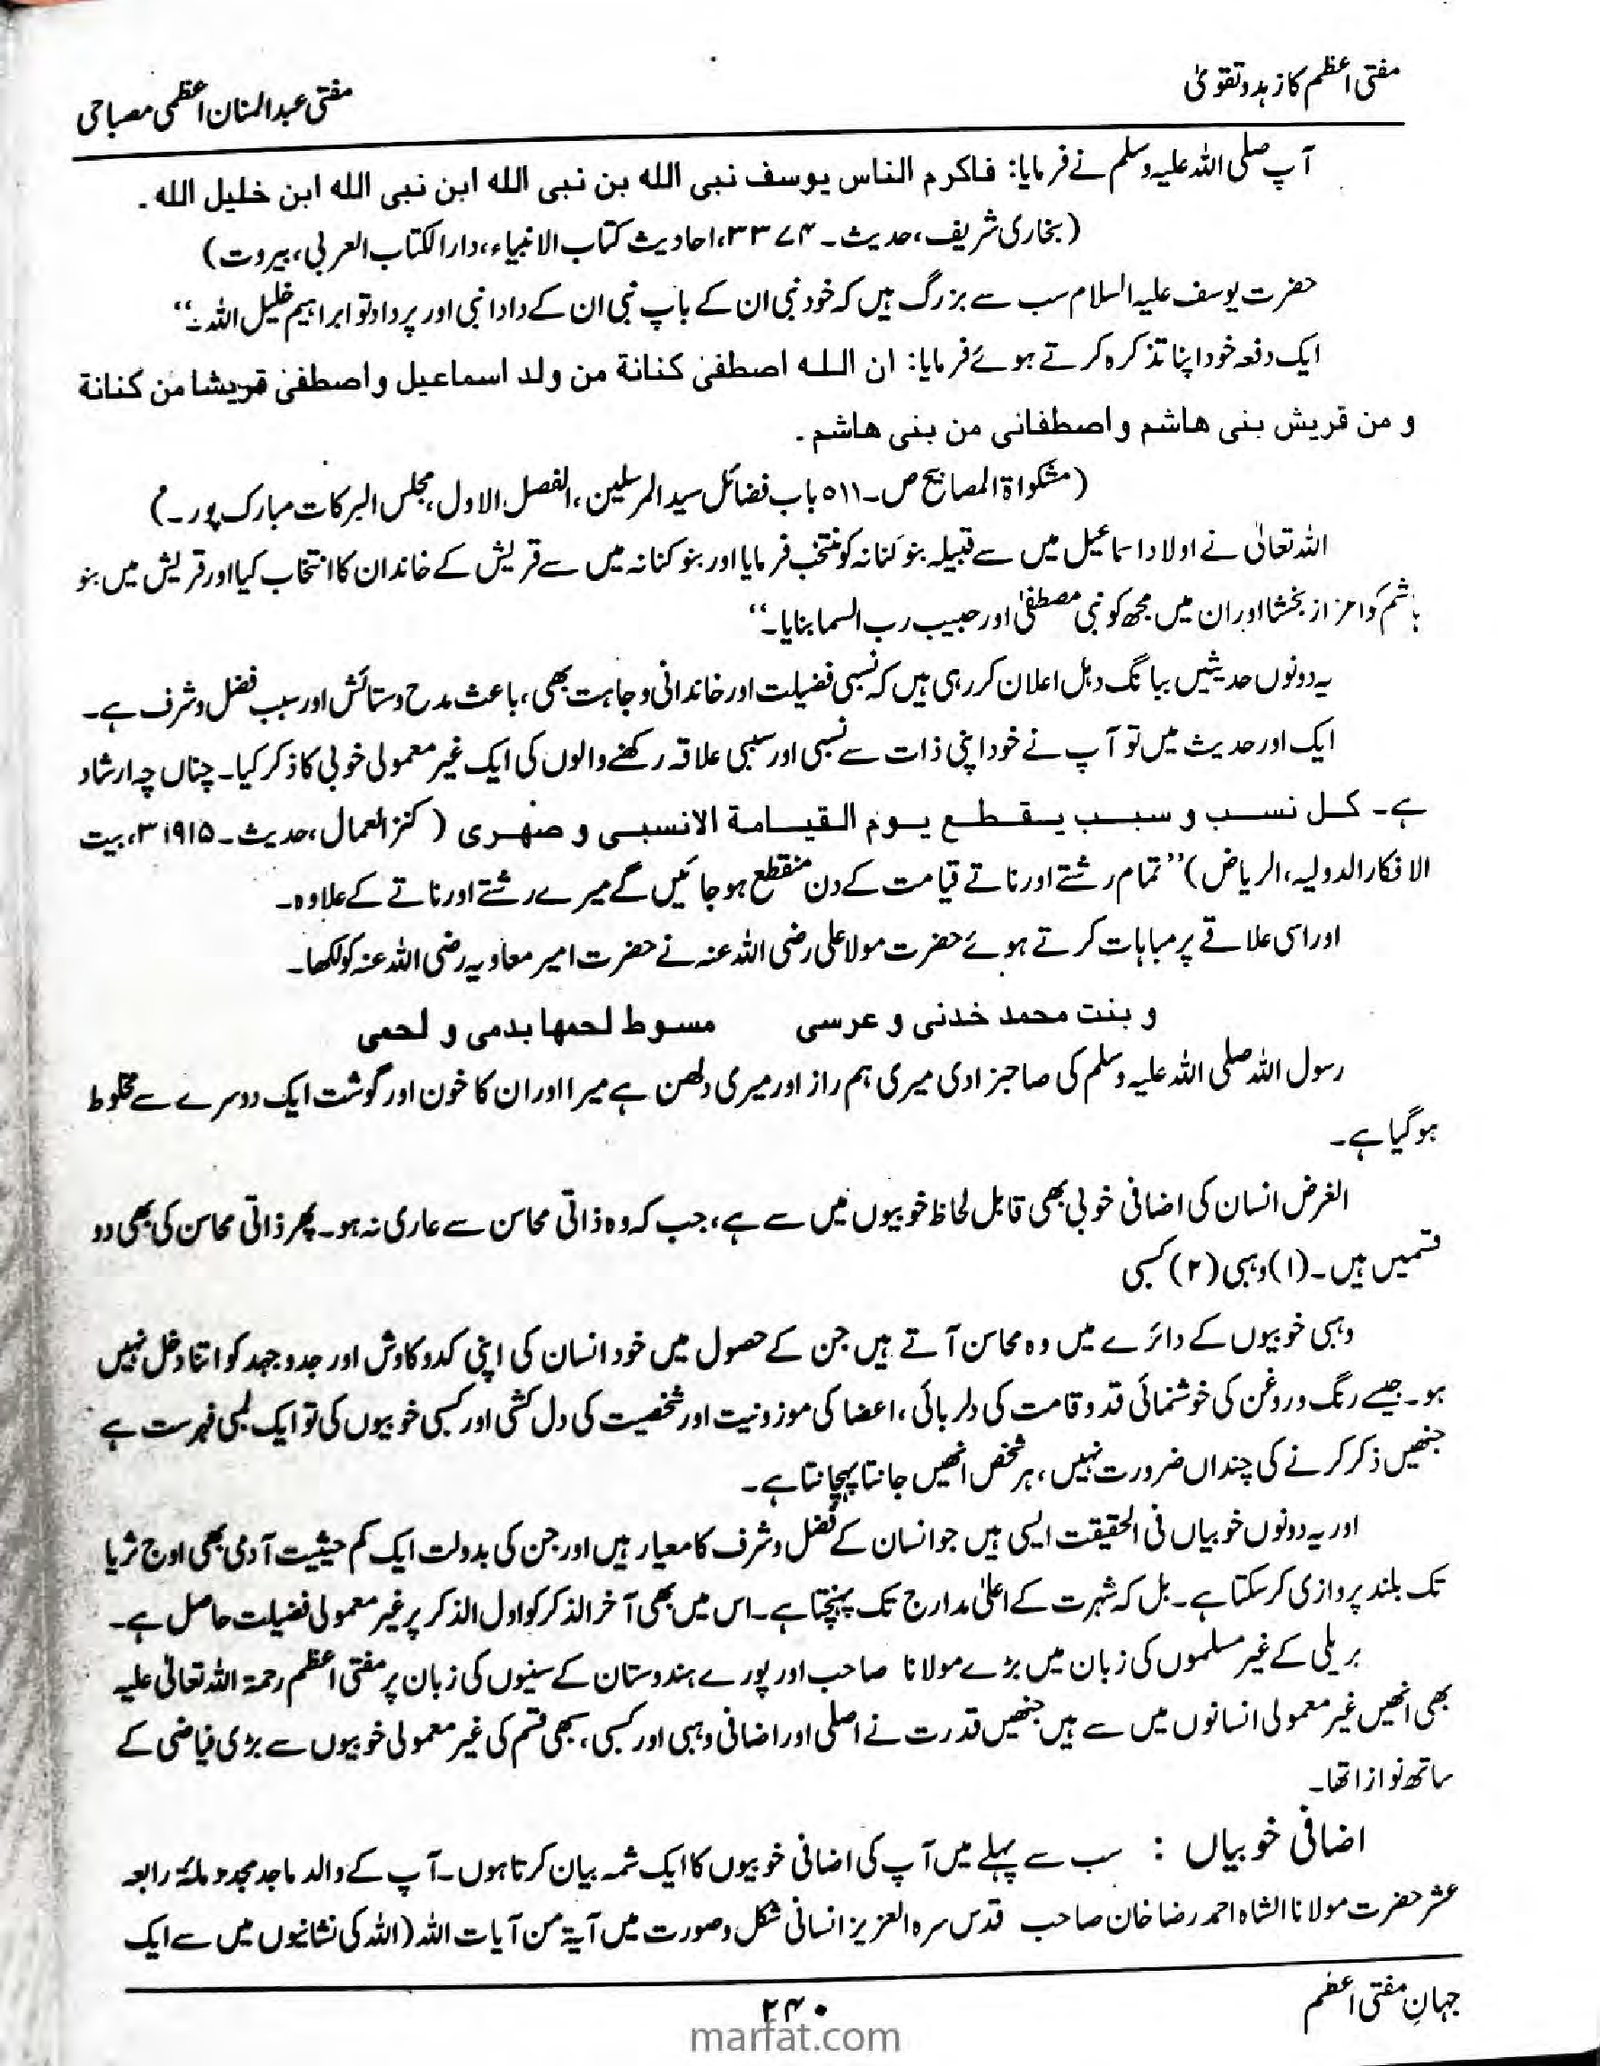 مفتی اعظم کا زہد و تقویٰ
مفتی عبدالمنان اعظمی مصباحی
آپ صلی اللہ علیہ وسلم نے فرمایا: فاکرم الناس یوسف نبی الله بن نبی الله ابن نبی الله ابن خلیل الله۔
(بخاری شریف، حدیث۔ ۳۳۷۴، احادیث کتاب الانبیاء، دارالکتاب العربی، بیروت)
حضرت یوسف علیہ السلام سب سے بزرگ ہیں کہ خود نبی ان کے باپ نبی ان کے دادا نبی اور پردادا تو ابراہیم خلیل اللہ۔“
ایک دفعہ خود اپنا تذکرہ کرتے ہوئے فرمایا: ان اللہ اصطفیٰ کنانة من ولد اسماعیل و اصطفیٰ قریشا من کنانة
و من قریش بنی هاشم و اصطفانی من بنی هاشم۔
(مشکواۃ المصابیح ص۔ ۵۱۱ باب فضائل سید المرسلین، الفصل الاول، مجلس البرکات مبارک پور۔)
اللہ تعالیٰ نے اولاد اسماعیل میں سے قبیلہ بنو کنانہ کو منتخب فرمایا اور بنو کنانہ میں سے قریش کے خاندان کا انتخاب کیا اور قریش میں بنو
ہاشم کو اعزاز بخشا اور ان میں مجھ کو نبی مصطفیٰ اور حبیب رب السما بنایا۔“
یہ دونوں حدیثیں ببانگ دہل اعلان کر رہی ہیں کہ نسبی فضیلت اور خاندانی وجاہت بھی، باعث مدح و ستائش اور سبب فضل و شرف ہے۔
ایک اور حدیث میں تو آپ نے خود اپنی ذات سے نسبی اور سببی علاقہ رکھنے والوں کی ایک غیر معمولی خوبی کا ذکر کیا۔ چناں چہ ارشاد
ہے۔ کل نسب و سبب یقطع یوم القیامة الانسبی و صهری (کنز العمال، حدیث۔ ۳۱۹۱۵، بیت
الافکار الدولیہ، الریاض) ”تمام رشتے اور ناتے قیامت کے دن منقطع ہو جائیں گے میرے رشتے اور ناتے کے علاوہ۔
اور اسی علاقے پر مباہات کرتے ہوئے حضرت مولا علی رضی اللہ عنہ نے حضرت امیر معاویہ رضی اللہ عنہ کو لکھا۔
و بنت محمد خدنی و عرسی مسوط لحمها بدمی و لحمی
رسول اللہ صلی اللہ علیہ وسلم کی صاحبزادی میری ہم راز اور میری دلھن ہے میرا اور ان کا خون اور گوشت ایک دوسرے سے مخلوط
ہو گیا ہے۔
الغرض انسان کی اضافی خوبی بھی قابل لحاظ خوبیوں میں سے ہے، جب کہ وہ ذاتی محاسن سے عاری نہ ہو۔ پھر ذاتی محاسن کی بھی دو
قسمیں ہیں۔ (۱) وہبی (۲) کسبی
وہبی خوبیوں کے دائرے میں وہ محاسن آتے ہیں جن کے حصول میں خود انسان کی اپنی کدوکاوش اور جدوجہد کو اتنا دخل نہیں
ہو۔ جیسے رنگ و روغن کی خوشنمائی قد و قامت کی دلربائی، اعضا کی موزونیت اور شخصیت کی دل کشی اور کسبی خوبیوں کی تو ایک لمبی فہرست ہے
جنھیں ذکر کرنے کی چنداں ضرورت نہیں، ہر شخص انھیں جانتا پہچانتا ہے۔
اور یہ دونوں خوبیاں فی الحقیقت ایسی ہیں جو انسان کے فضل و شرف کا معیار ہیں اور جن کی بدولت ایک کم حیثیت آدمی بھی اوج ثریا
تک بلند پروازی کر سکتا ہے۔ بل کہ شہرت کے اعلیٰ مدارج تک پہنچتا ہے۔ اس میں بھی آخر الذکر کو اول الذکر پر غیر معمولی فضیلت حاصل ہے۔
بریلی کے غیر مسلموں کی زبان میں بڑے مولانا صاحب اور پورے ہندوستان کے سنیوں کی زبان پر مفتی اعظم رحمۃ اللہ تعالیٰ علیہ
بھی انھیں غیر معمولی انسانوں میں سے ہیں جنھیں قدرت نے اصلی اور اضافی وہبی اور کسبی، سبھی قسم کی غیر معمولی خوبیوں سے بڑی فیاضی کے
ساتھ نوازا تھا۔
اضافی خوبیاں : سب سے پہلے میں آپ کی اضافی خوبیوں کا ایک شمہ بیان کرتا ہوں۔ آپ کے والد ماجد مجدد مائۃ رابعہ
عشر حضرت مولانا الشاہ احمد رضا خان صاحب قدس سرہ العزیز انسانی شکل و صورت میں آیۃ من آیات اللہ (اللہ کی نشانیوں میں سے ایک
جہانِ مفتی اعظم
۲۴۰
marfat.com